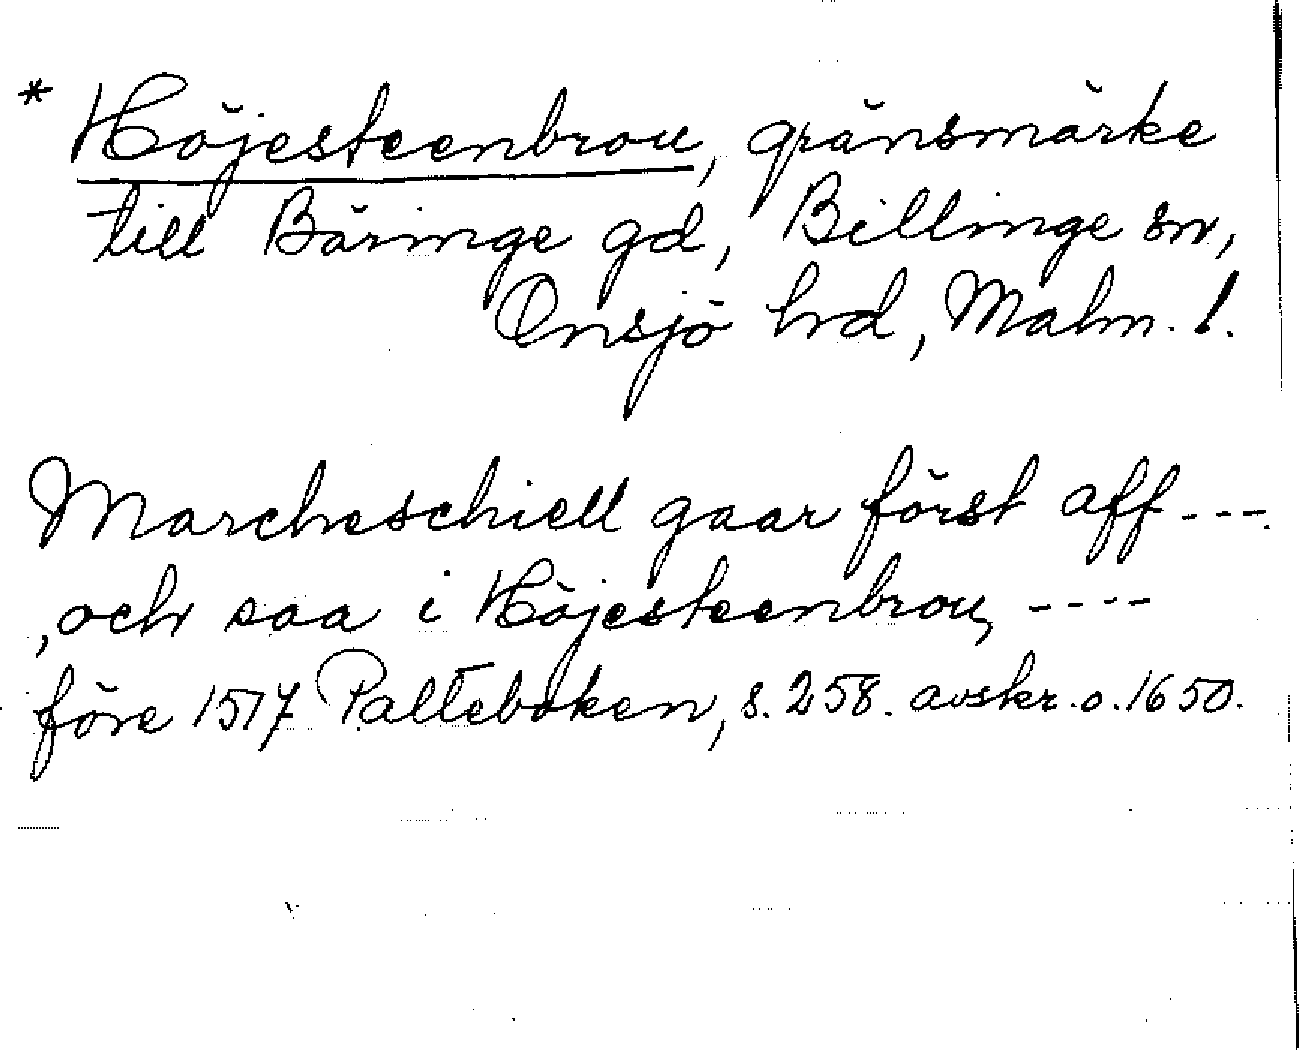 * Höjesteenbrou, gränsmärke
till Bäringe gd, Billinge sn,
Onsjö hd, Malm. l.
Marcheschiell gaar först aff ---.
, och saa i Höjesteenbrou, ----
före 1517 Palteboken, s. 258. avskr. o. 1650.